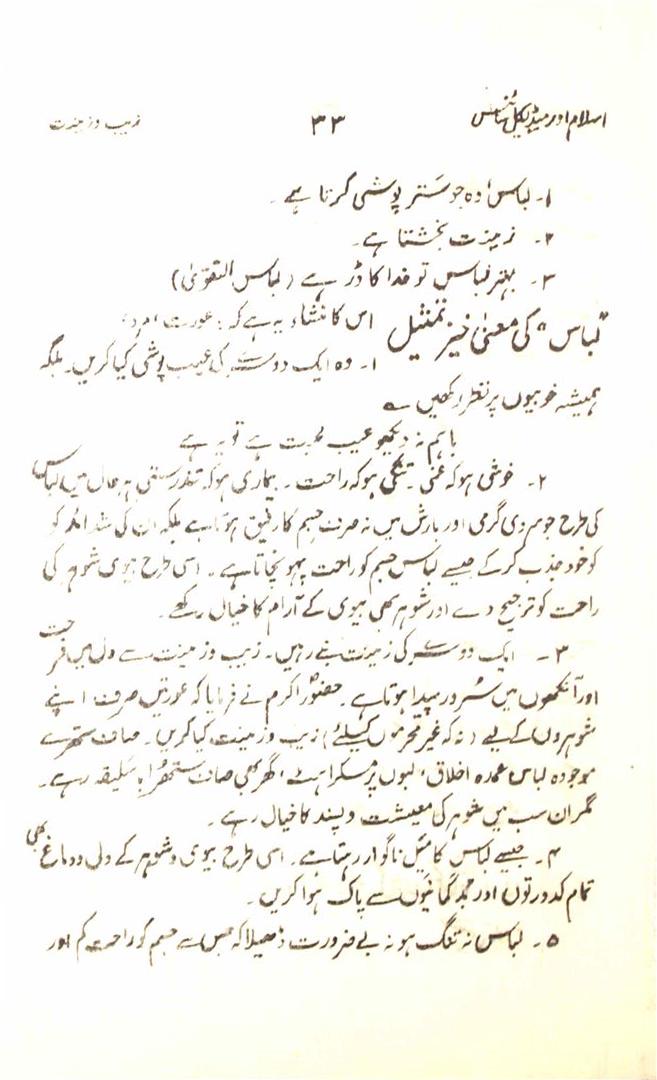 اسلام اور میڈیکل سائنس ۳۳ زیب و زینت
۱۔ لباس وہ جو ستر پوشی کرتا ہے۔
۲۔ زینت بخشتا ہے۔
۳۔ بہتر لباس تو خدا کا ڈر ہے (لباس التقویٰ)
"لباس" کی معنیٰ خیز تمثیل اس کا منشاء یہ ہے کہ: عورت، مرد،
۱۔ وہ ایک دوسرے کی عیب پوشی کیا کریں۔ بلکہ
ہمیشہ خوبیوں پر نظر رکھیں ؎
باہم نہ دیکھو عیب محبت ہے تو یہ ہے
۲۔ خوشی ہو کہ غمی۔ تنگی ہو کہ راحت۔ بیماری ہو کہ تندرستی ہر حال میں لباس
کی طرح جو سردی گرمی اور بارش میں نہ صرف جسم کا رفیق ہوتا ہے بلکہ ان کی شدائد کو
کو خود جذب کر کے جیسے لباس جسم کو راحت پہونچاتا ہے۔ اسی طرح بیوی شوہر کی
راحت کو ترجیح دے اور شوہر بھی بیوی کے آرام کا خیال رکھے۔
۳۔ ایک دوسرے کی زینت بنے رہیں۔ زیب و زینت سے دل میں فرحت
اور آنکھوں میں سُرور پیدا ہوتا ہے۔ حضورؐ اکرم نے فرمایا کہ عورتیں صرف اپنے
شوہروں کے لیے (نہ کہ غیر محرموں کیلئے) زیب و زینت کیا کریں۔ صاف ستھرے
موجودہ لباس، عمدہ اخلاق، لبوں پر مسکراہٹ، گھر بھی صاف ستھرا، باسلیقہ رہے۔
مگر ان سب میں شوہر کی معیشت و پسند کا خیال رہے۔
۴۔ جیسے لباس کا میل ناگوار رہتا ہے۔ اسی طرح بیوی و شوہر کے دل و دماغ بھی
تمام کدورتوں اور بدگمانیوں سے پاک ہوا کریں۔
۵۔ لباس نہ تنگ ہو نہ بے ضرورت ڈھیلا کہ جس سے جسم کو راحت کم اور